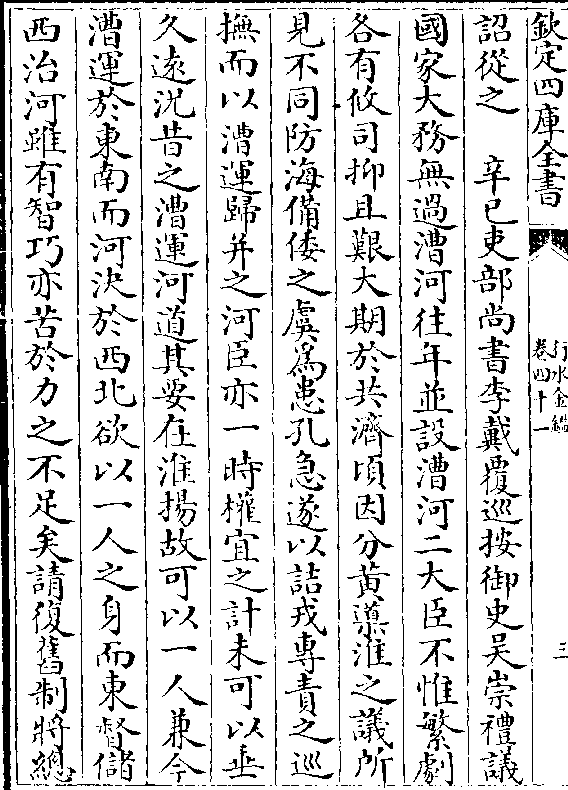 欽定四庫全書
行水金鑑
卷四十一
三
詔從之　辛已吏部尚書李戴覆巡按御史吴崇禮議
國家大務無過漕河往年並設漕河二大臣不惟繁劇
各有攸司抑且艱大期於共濟頃因分黄導淮之議所
見不同防海備倭之虞為患孔急遂以詰戎專責之巡
撫而以漕運歸并之河臣亦一時權宜之計未可以垂
久逺況昔之漕運河道其要在淮揚故可以一人兼今
漕運於東南而河決於西北欲以一人之身而東督儲
西治河雖有智巧亦苦於力之不足矣請復舊制將總